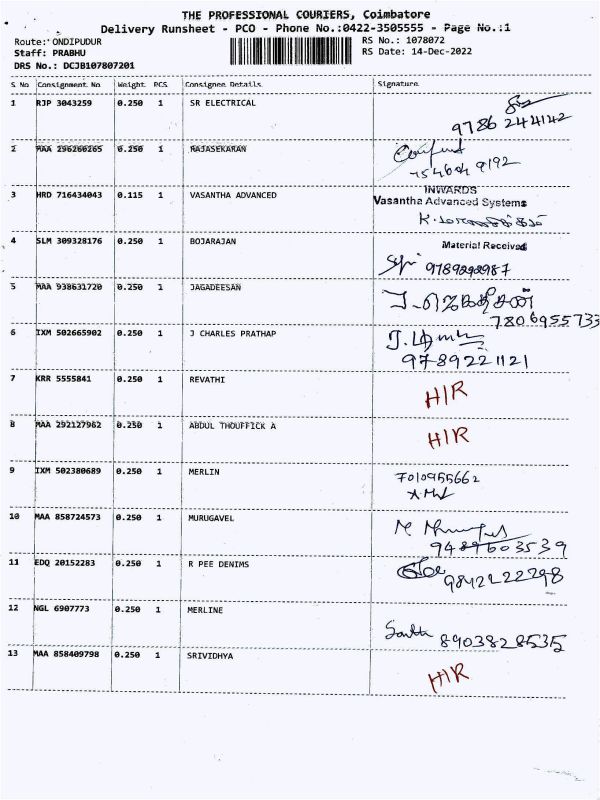 THE PROFESSIONAL COURIERS, Coimbatore
Delivery Runsheet - PCO - Phone No.:0422-3505555 - Page No.:1
Route: ONDIPUDUR RS No.: 1078072
Staff: PRABHU RS Date: 14-Dec-2022
DRS No.: DCJB107807201
S No Consignment No Weight PCS Consignee Details Signature
1 RJP 3043259 0.250 1 SR ELECTRICAL
9786 244142
2 MAA 296266265 0.250 1 RAJASEKARAN
3 HRD 716434043 0.115 1 VASANTHA ADVANCED
INWARDS
Vasantha Advanced Systems
Material Received
4 SLM 309328176 0.250 1 BOJARAJAN
9789292987
5 MAA 938631720 0.250 1 JAGADEESAN
7806955733
6 IXM 502665902 0.250 1 J CHARLES PRATHAP
9789221121
7 KRR 5555841 0.250 1 REVATHI
H/R
8 MAA 292127962 0.250 1 ABDUL THOUFFICK A
H/R
9 IXM 502380689 0.250 1 MERLIN
7010955662
10 MAA 858724573 0.250 1 MURUGAVEL
9489603539
11 EDQ 20152283 0.250 1 R PEE DENIMS
9842222298
12 NGL 6907773 0.250 1 MERLINE
8903828535
13 MAA 858409798 0.250 1 SRIVIDHYA
H/R